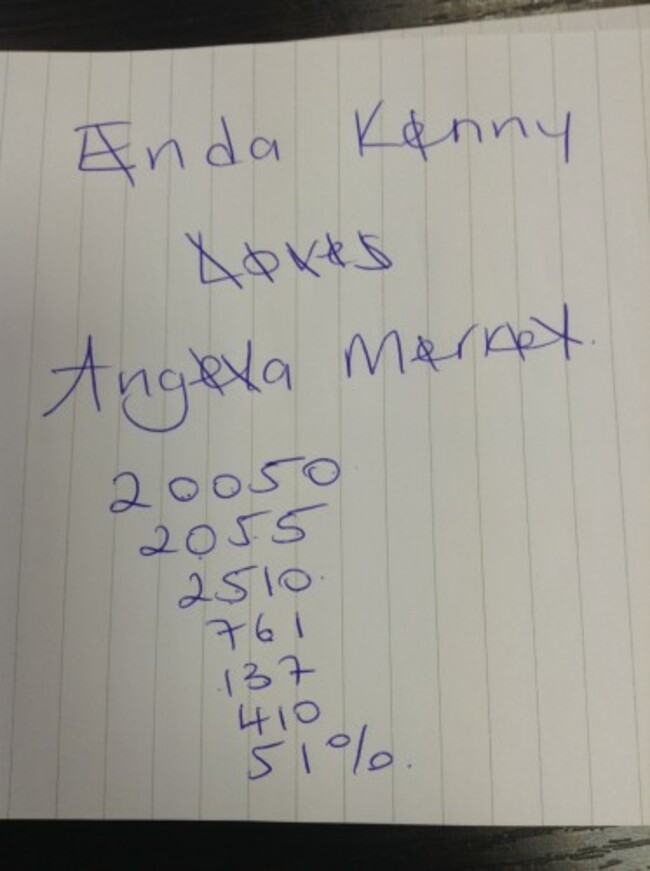 Enda Kenny
Loves
Angela Merkel.
20050
2055
2510
761
137
410
51%.